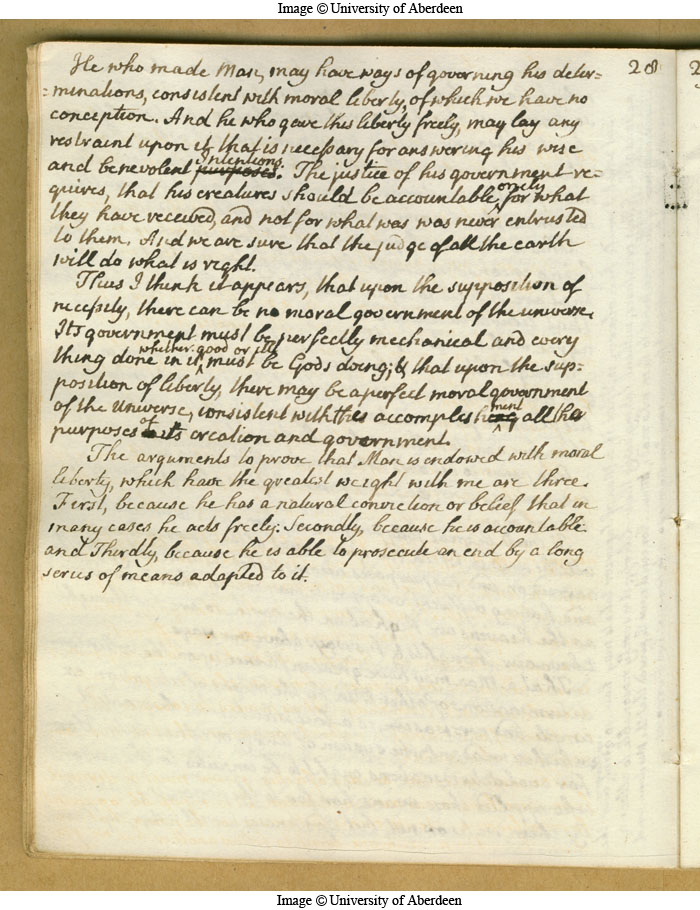 Image © University of Aberdeen
208
He who made Man, may have ways of governing his deter=
=minations, consistent with moral liberty, of which we have no
conception. And he who gave this liberty freely, may lay any
restraint upon it that is necessary for answering his wise
and benevolent purposes. Intentions. The justice of his government re=
quires, that his creatures should be accountable onely for what
they have received, and not for what was was never entrusted
to them. And we are sure that the judge of all the earth
will do what is right.
Thus I think it appears, that upon the supposition of
necessity, there can be no moral government of the universe.
Its government must be perfectly mechanical and every
thing done in it, whither good or ill, must be Gods doing; & that upon the sup=
position of liberty, there may be a perfect moral government
of the Universe, consistent with the accomplishment all the
purposes of its creation and government.
The arguments to prove that Man is endowed with moral
liberty, which have the greatest weight with me are three.
First, because he has a natural conviction or belief, that in
many cases he acts freely. Secondly, because he is acountable.
and Thirdly, because he is able to prosecute an end by a long
series of means adapted to it.
Image © University of Aberdeen